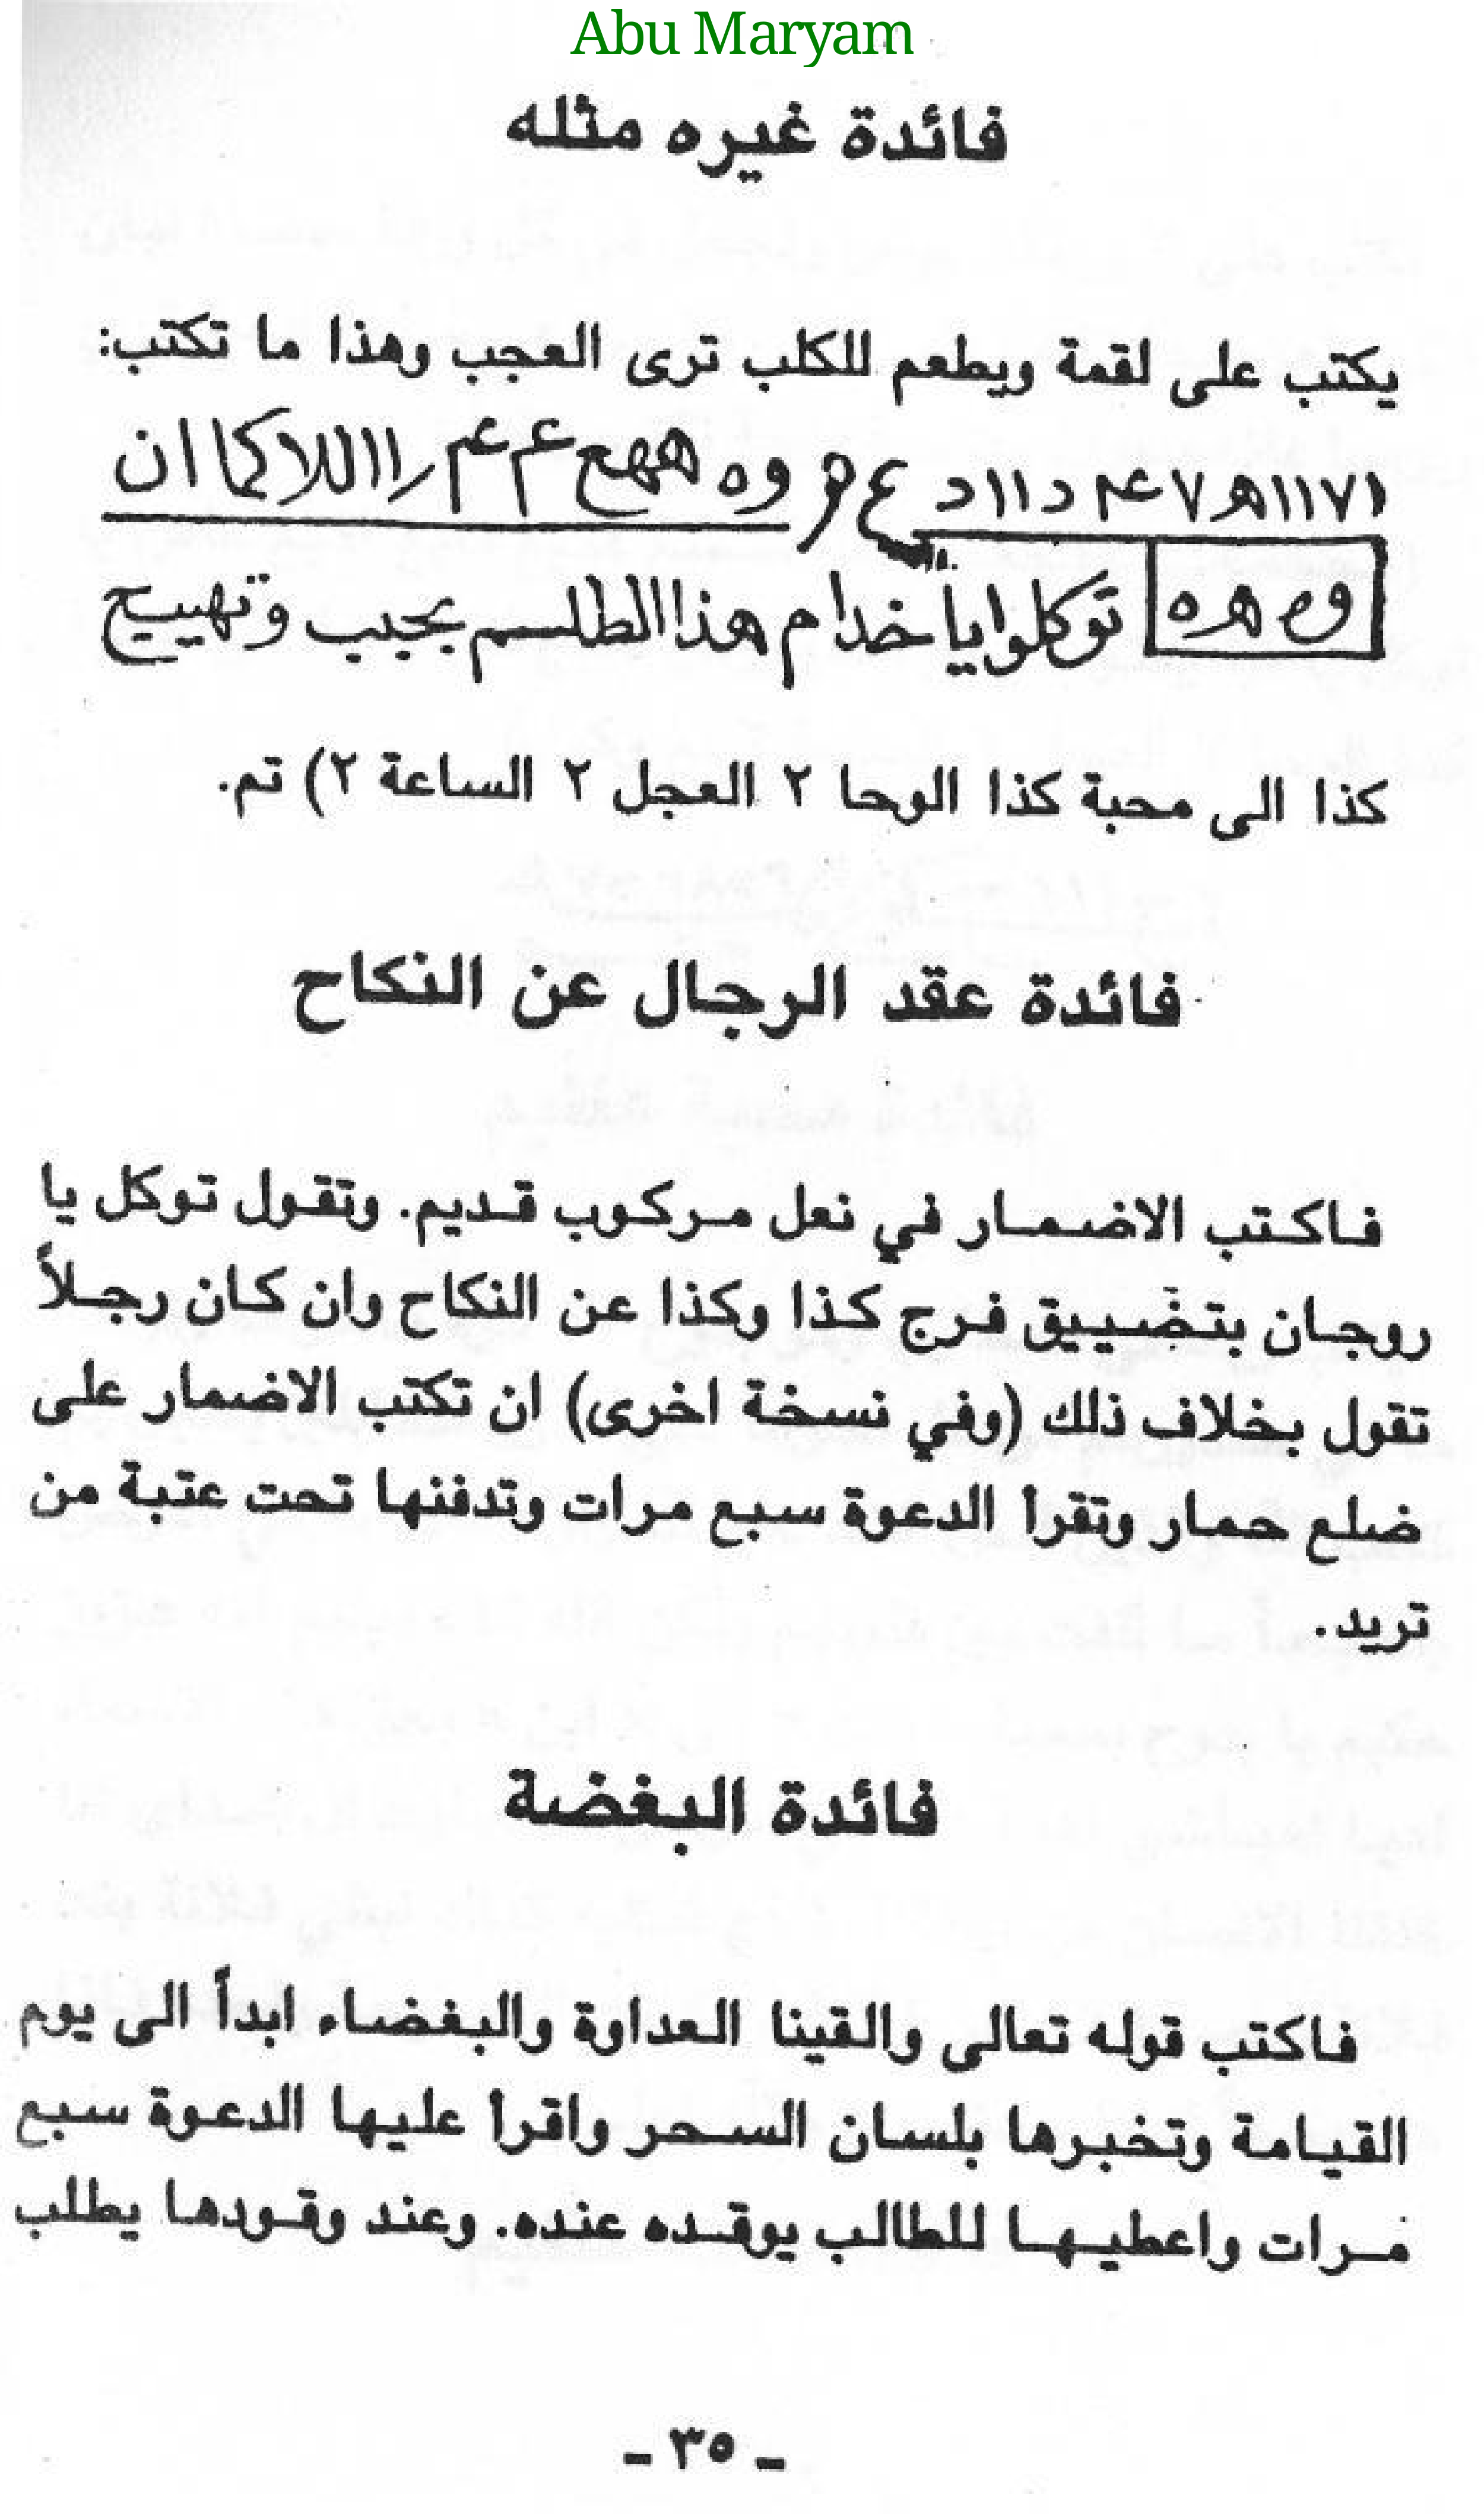 Abu Maryam
فائدة غيره مثله
يكتب على لقمة ويطعم للكلب ترى العجب وهذا ما تكتب:
توكلوا يا خدام هذا الطلسم بجيب وتهييج
كذا الى محبة كذا الوحا ٢ العجل ٢ الساعة ٢) تم.
فائدة عقد الرجال عن النكاح
فاكتب الاضمار في نعل مركوب قديم. وتقول توكل يا
روجان بتضييق فرج كذا وكذا عن النكاح وان كان رجلاً
تقول بخلاف ذلك (وفي نسخة اخرى) ان تكتب الاضمار على
ضلع حمار وتقرأ الدعوة سبع مرات وتدفنها تحت عتبة من
تريد.
فائدة البغضة
فاكتب قوله تعالى والقينا العداوة والبغضاء ابداً الى يوم
القيامة وتخبرها بلسان السحر واقرأ عليها الدعوة سبع
مرات واعطيها للطالب يوقده عنده. وعند وقودها يطلب
- ٣٥ -